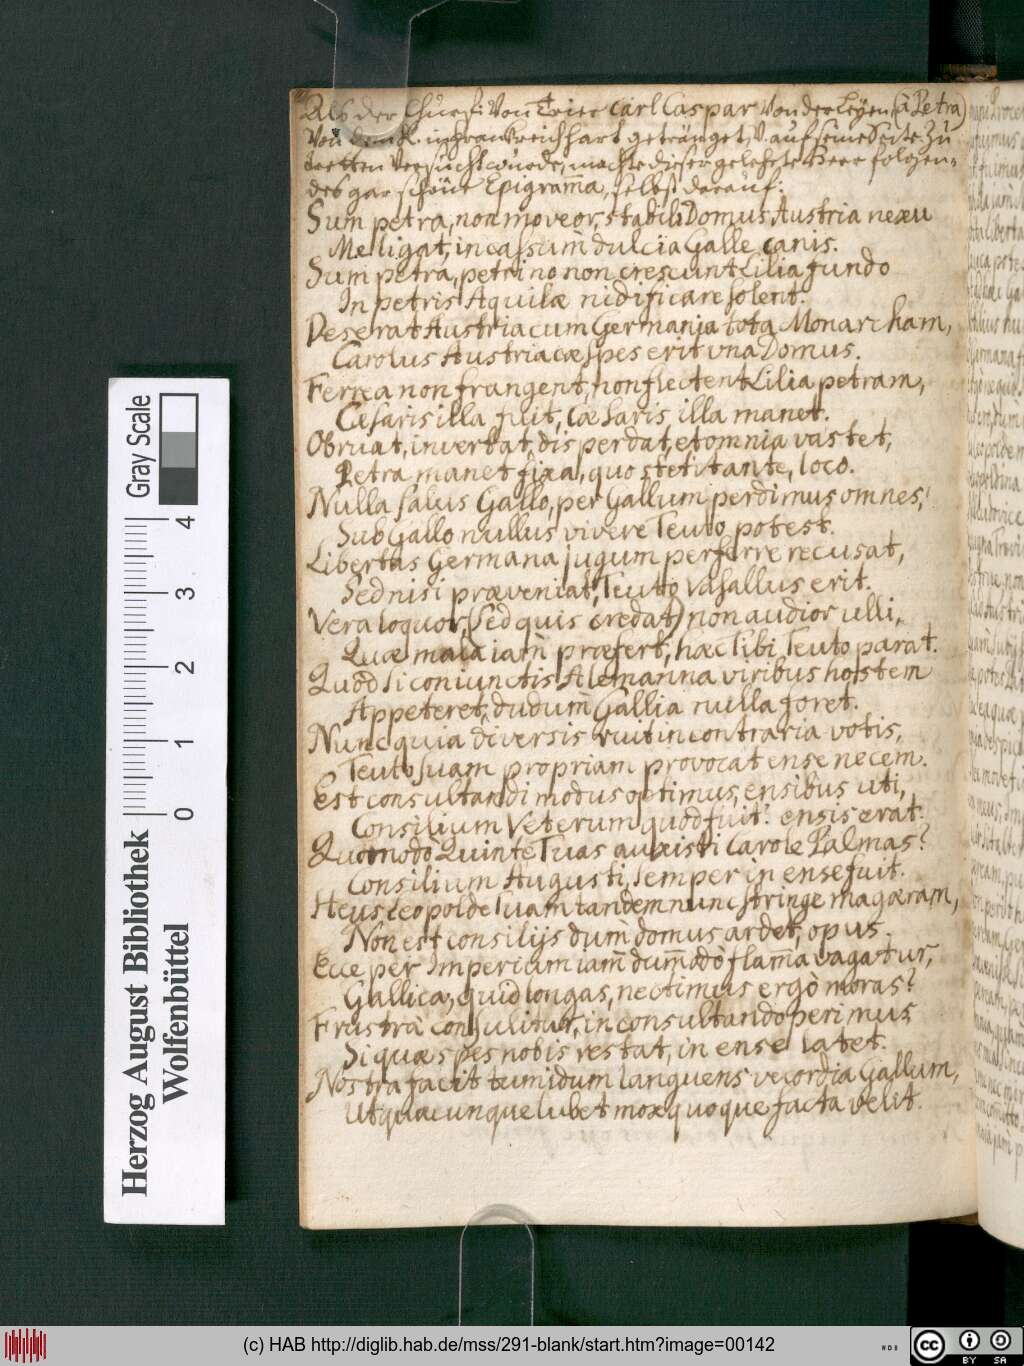 Als der Churf: von Trier Carl Caspar von der Leyen (à Petra)
von dem K. in Franckreich hart getränget, v. auf seine Seite zu
tretten versucht wurde, machte dieser gelehrte Herr folgen-
des gar schöne Epigram̄a, selbst darauf:
Sum petra, non moveor, stabili Domus Austria nexu
Me ligat, incassum dulcia Galle canis.
Sum petra, petrino non crescunt Lilia fundo
In petris Aquilæ nidificare solent.
Deserat Austriacum Germania tota Monarcham,
Carolus Austriacæ spes erit vna Domus.
Ferrea non frangent, non flectent Lilia petram,
Cæsaris illa fuit, Cæsaris illa manet.
Obruat, invertat, disperdat, et omnia vastet,
Petra manet fixa, quo stetit ante, loco.
Nulla salus Gallo, per Gallum perdimus omnes,
Sub Gallo nullus vivere Teuto potest.
Libertas Germana jugum perferre recusat,
Sed nisi præveniat, Teuto Vasallus erit.
Vera loquor, (sed quis credat) non audior ulli,
Quæ mala iam præfert, hæc Tibi Teuto parat.
Quod si coniunctis Alemanna viribus hostem
Appeteret, dudum Gallia nulla foret.
Nunc quia diversis ruit in contraria votis,
Teuto suam propriam provocat ense necem.
Est consultandi modus optimus, ensibus uti,
Consilium Veterum quod fuit? ensis erat.
Quomodo Quinte Tuas auxisti Carole Palmas?
Consilium Augusti, semper in ense fuit.
Heus Leopolde Tuam tandem nunc stringe magæram,
Non est consilijs dum domus ardet, opus.
Ecce per Imperium iam dum̄odò flam̄a vagatur,
Gallica, quid longas, nectimus ergò moras?
Frustrà consulitur, in consultando perimus
Si quæ spes nobis restat, in ense latet.
Nostra facit tumidum languens vecordia Gallum,
Ut quæcunque lubet mox quoque facta velit.
Herzog August Bibliothek
Wolfenbüttel
Gray Scale
0 1 2 3 4
(c) HAB http://diglib.hab.de/mss/291-blank/start.htm?image=00142
WDB
cc BY SA